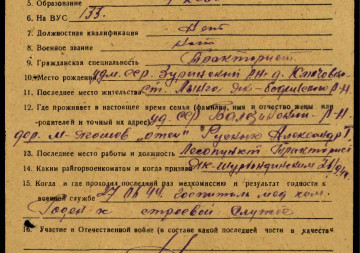 5. Образование
6. На ВУС 133.
7. Должностная квалификация Нет
8. Военное звание Нет
9. Гражданская специальность Тракторист
10. Место рождения Удм. ССР. Зуринский р-н д. Ключево
11. Последнее место жительства ст. Лынга Як-Бодьинский р-н
12. Где проживает в настоящее время семья (фамилия, имя и отчество жены или
родителей и точный их адрес) Уд. ССР Балезинский р-н
дер. м- "отец" Русских Александр
13. Последнее место работы и должность Лесопункт Тракторист
14. Каким райгорвоенкоматом и когда призван
15. Когда и где проходил последний раз медкомиссию и результат годности к
военной службе 27 44
Годен к строевой службе
16. Участие в Отечественной войне (в составе какой последней части и в качестве